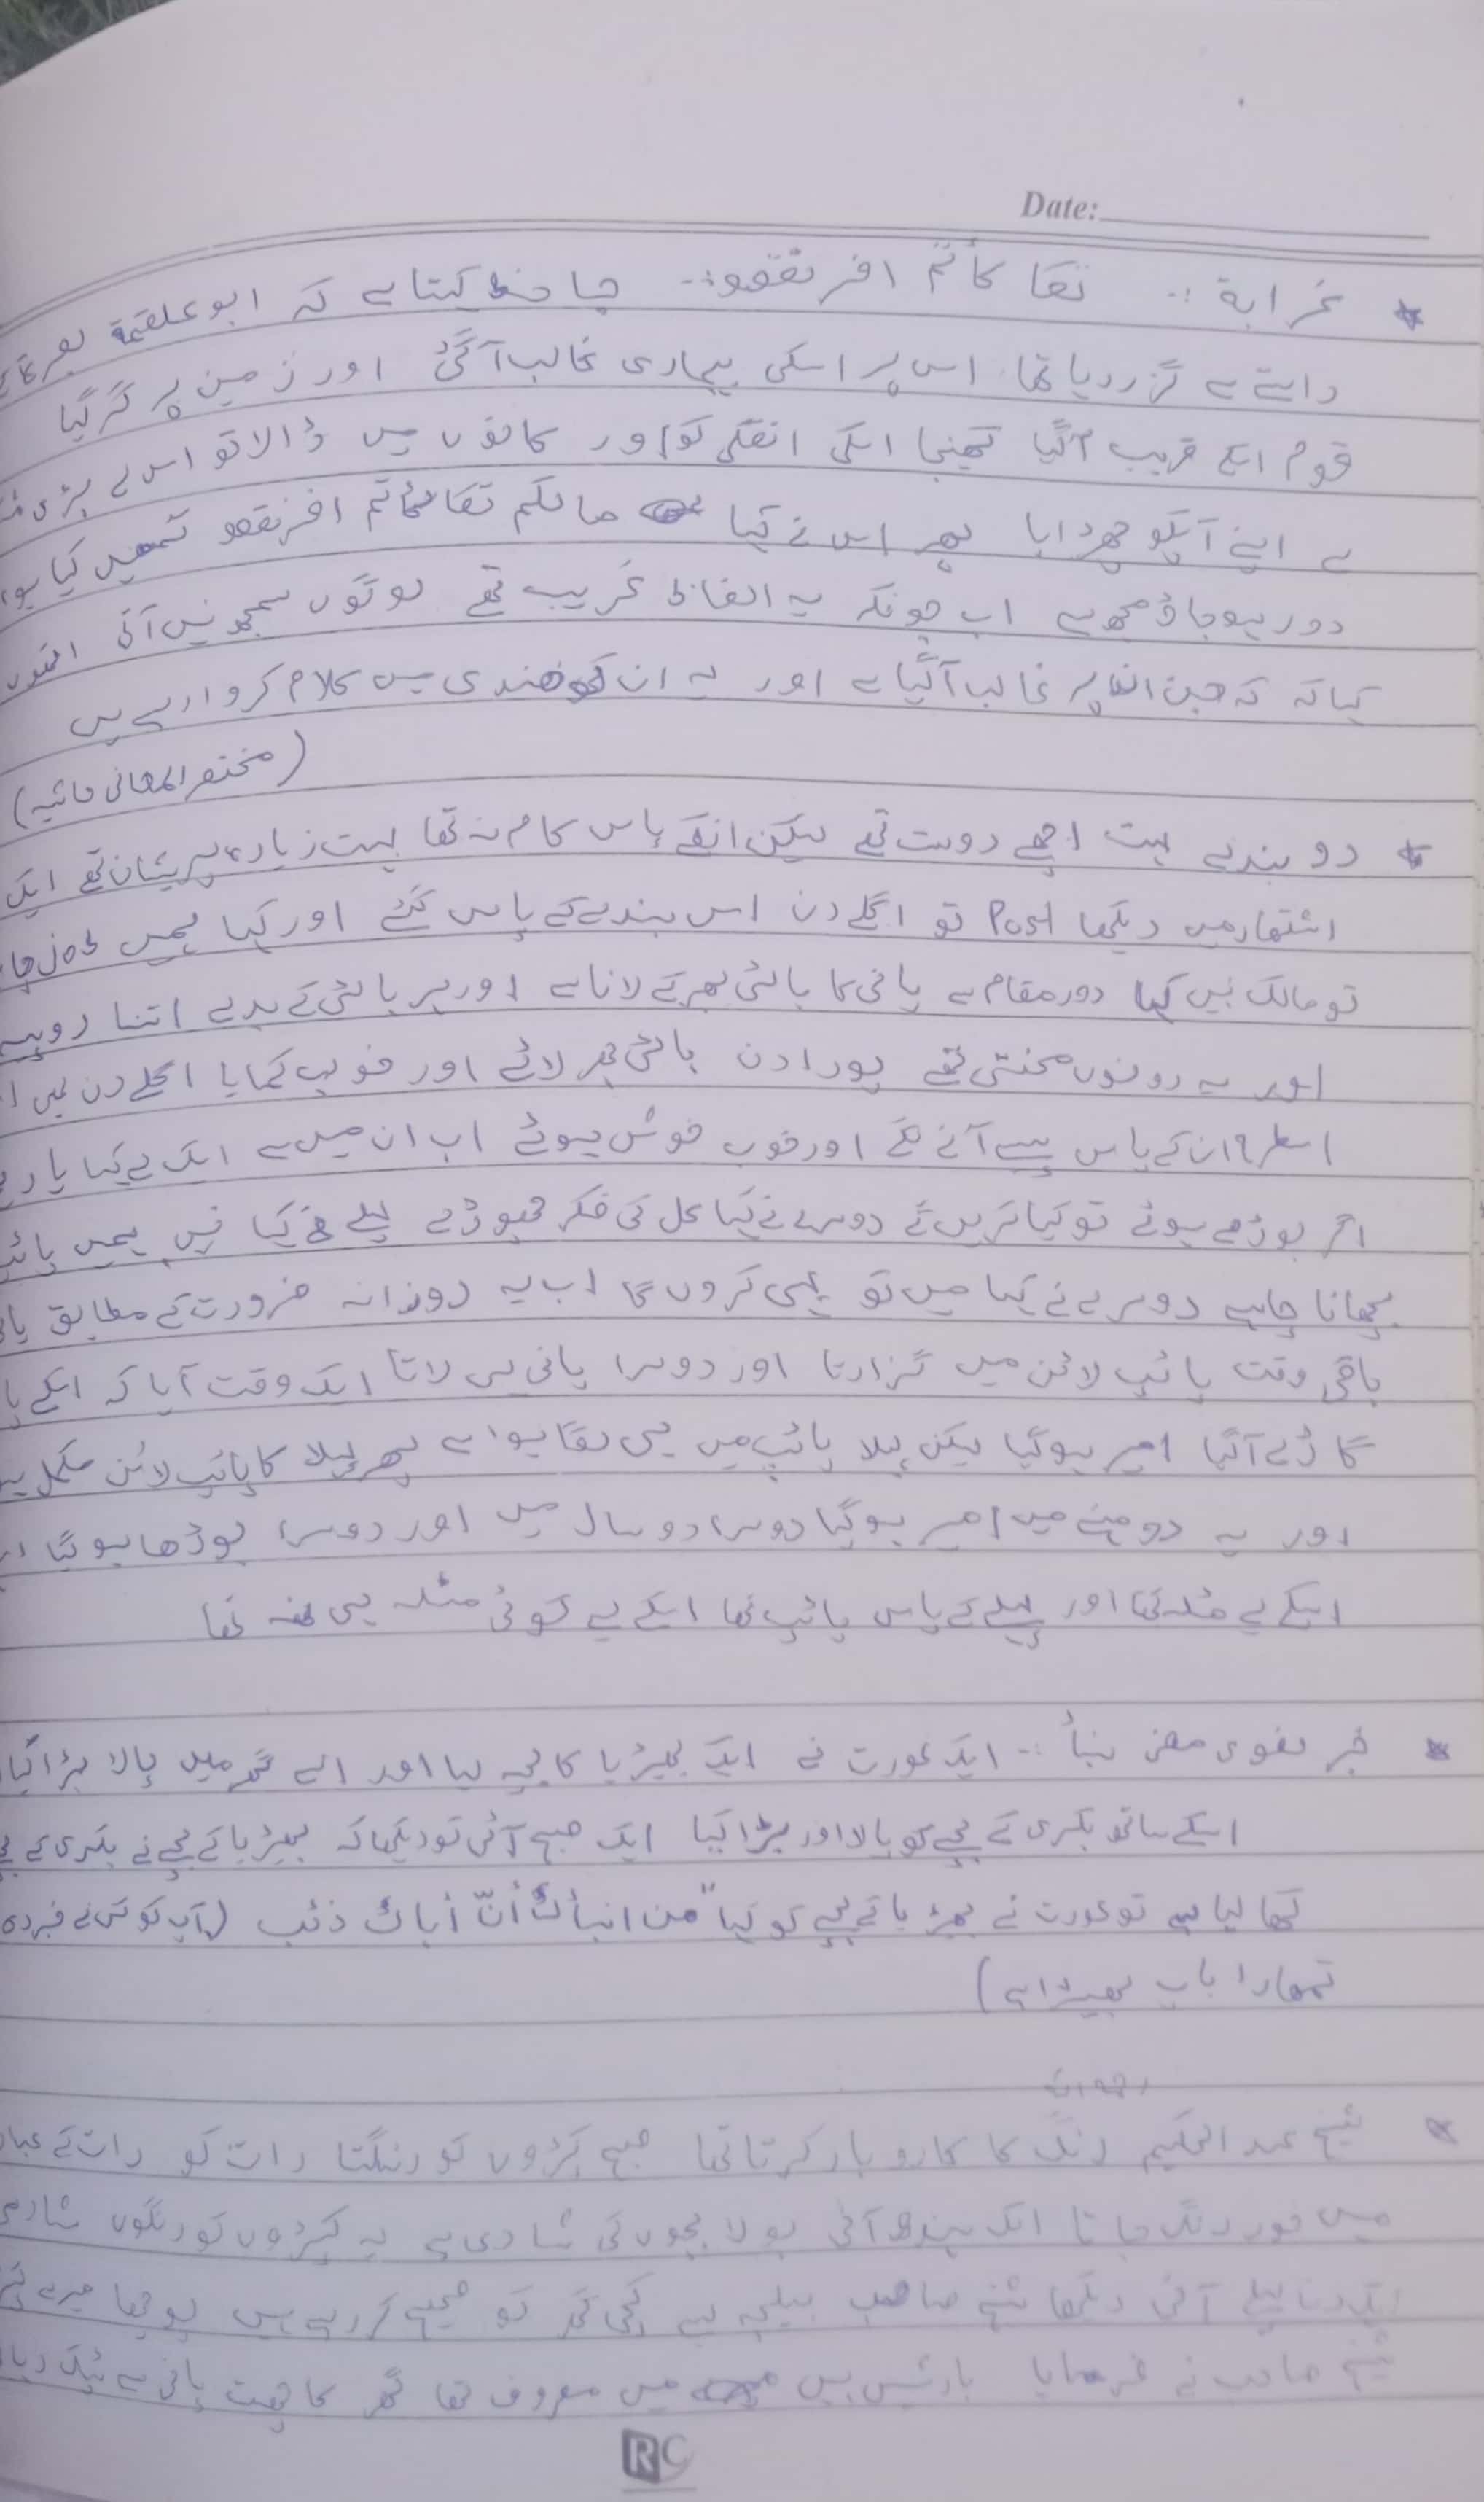 Date:
* غرابة :- تکا کأتم افرنقعو:- جاحظ کہتا ہے کہ ابو علقمة بصرة کے
راستے سے گزر رہا تھا اس پر اسکی بیماری غالب آگئ اور زمین پر گر گیا
قوم اسکے قریب آگیا اسکی انگلی کو اور کانوں میں ڈالا تو اس نے
سے اپنے آپکو چھڑایا پھر اس نے کہا مالکم تکاکأتم افرنقعو تمھیں کیا ہوا
دور ہوجاؤ مجھ سے اب چونکہ یہ الفاظ غریب تھے لوگوں سمجھ نہیں آئی انہوں
کہا کہ کہ جن ان پر غالب آگیا ہے اور یہ ان کو ھندی میں کلام کروا رہے ہیں
(مختصر المعانی حاشیہ)
* دو بندے بہت اچھے دوست تھے لیکن انکے پاس کام نہ تھا بہت زیادہ پریشان تھے ایک
اشتھار میں دیکھا Post تو اگلے دن اس بندے کے پاس گئے اور کہا ہمیں
تو مالک نیں کہا دور مقام سے پانی کا بالٹی بھر کے لانا ہے اور ہر بالٹی کے بدلے اتنا روپیہ
اور یہ دونوں محنتی تھے پورا دن بالٹی بھر لائے اور خوب کمایا اگلے دن بھی
اسطرح ان کے پاس پیسے آنے لگے اور خوب خوش ہوئے اب ان میں سے ایک نے کہا یار
اگر بوڑھے ہوئے تو کیا کریں گے دوسرے نے کہا کل کی فکر چھوڑدے پہلے نے کہا نہیں ہمیں پائپ
بچھانا چاہیے دوسرے نے کہا میں تو یہی کروں گا اب یہ روزانہ ضرورت کے مطابق
باقی وقت پائپ لائن میں گزارتا اور دوسرا پانی ہی لاتا ایک وقت آیا کہ اسکے
گاڑے آگیا امیر ہوگیا لیکن پہلا پائپ میں ہی لگا ہوا ہے پھر پہلا کا پائپ لائن مکمل
اور یہ دو مہنے میں امیر ہوگیا دوسرا دو سال میں اور دوسرا بوڑھا ہوگیا
اسکے لیے مئلہ تھا اور پہلے کے پاس پائپ تھا اسکے لیے کوئی مئلہ ہی نہ تھا
* خبر بنبأ :- ایک عورت نے ایک بھیڑیا کا بچہ لیا اور اسے گھر میں پالا بڑا کیا
اسکے ساتھ بکری کے بچے کو پالا اور بڑا کیا ایک صبح آئی تو دیکھا کہ بھیڑیا کے بچے نے بکری کے
کھا لیا ہے تو عورت نے بھیڑیا کے بچے کو کہا "من انبأك أنّ أباك ذئب (آپ کو کس نے خبر دی
تمھارا باپ بھیڑا ہے)
* شیخ عبد الحکیم رنگ کا کاروبار کرتا تھا صبح کپڑوں کو رنگتا رات کو رات کے
میں خود رنگ جاتا ایک بندہ آئی بولا بچوں کی شادی ہے یہ کپڑوں کو رنگوں شادی
پہلے آئی دیکھا شیخ صاحب بیلچہ لیے کچی گھر کو صحیح کر رہے ہیں پوچھا میرے
شیخ صاحب نے فرمایا بارشیں ہیں میں معروف تھا گھر کا چھت پانی سے ٹپک رہا
RC